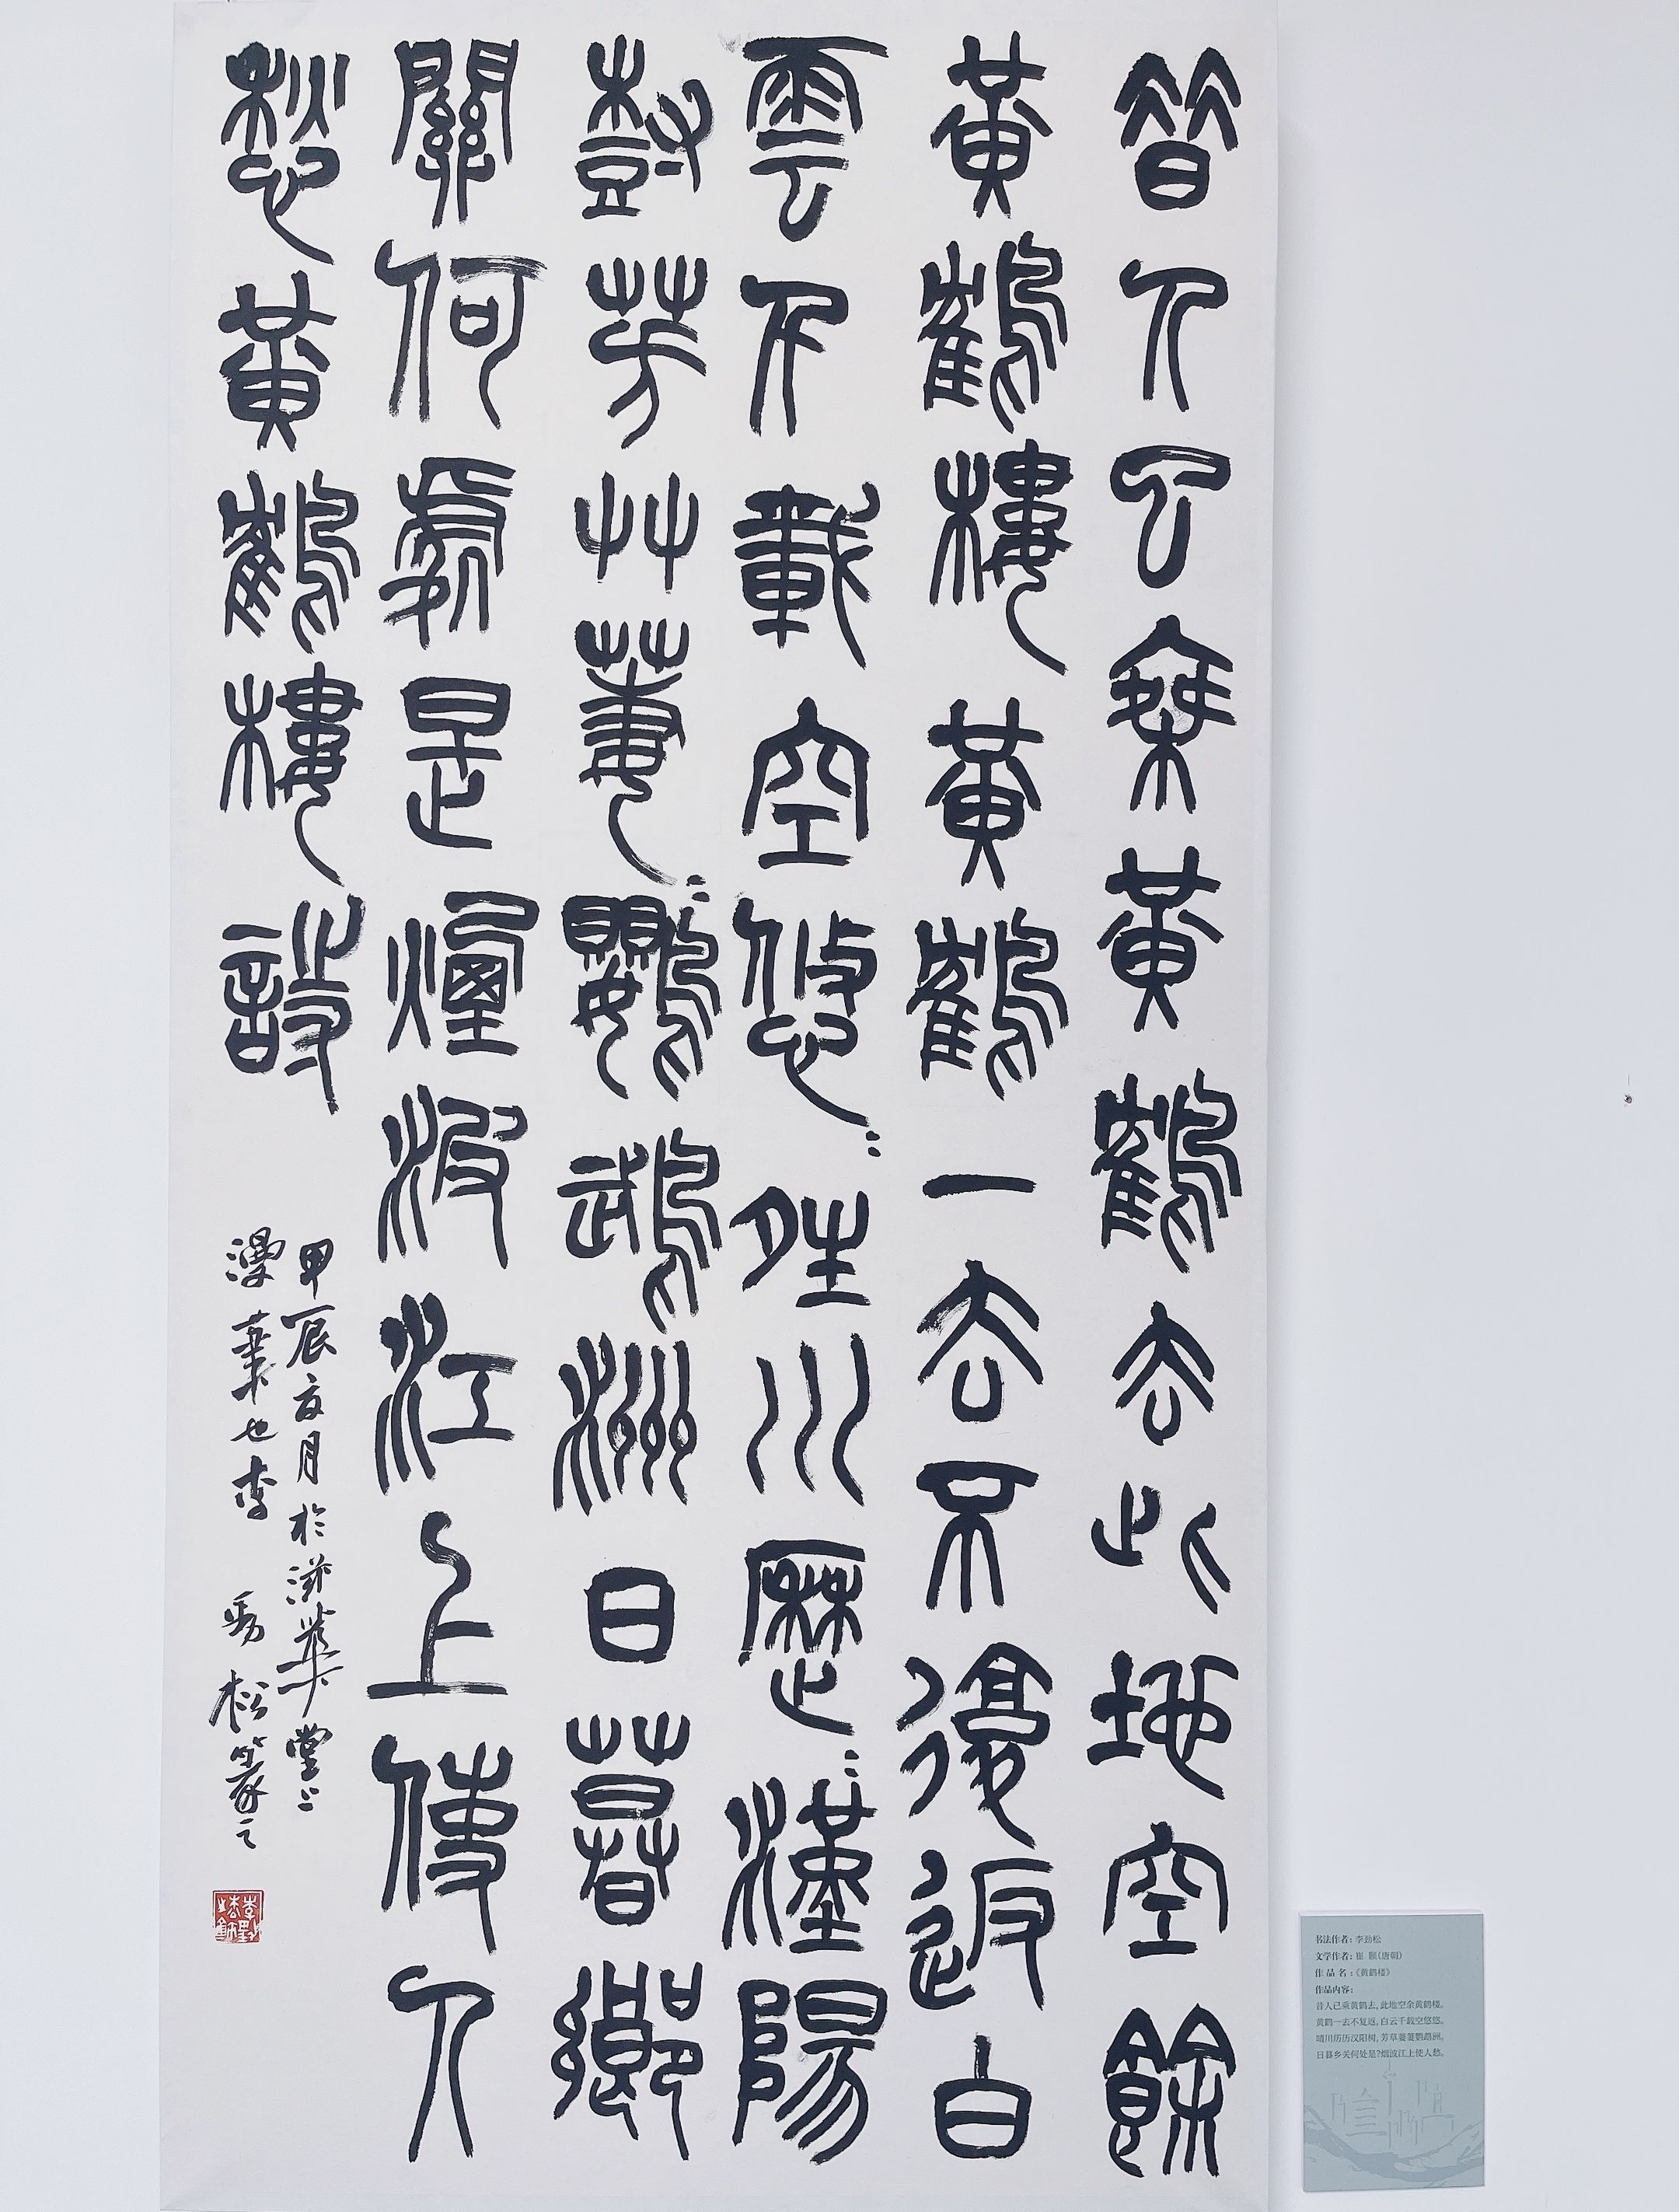 昔人已乘黃鶴去此地空餘
黃鶴樓黃鶴一去不復返白
雲千載空悠〻晴川歷〻漢陽
樹芳艸萋〻鸚鵡洲日暮鄉
關何處是煙波江上使人
愁黃鶴樓詩
甲辰亥月於堂上
李勁松篆之
书法作者：李劲松
文学作者：崔 颢（唐朝）
作 品 名 ：《黄鹤楼》
作品内容：
昔人已乘黄鹤去，此地空余黄鹤楼。
黄鹤一去不复返，白云千载空悠悠。
晴川历历汉阳树，芳草萋萋鹦鹉洲。
日暮乡关何处是？烟波江上使人愁。